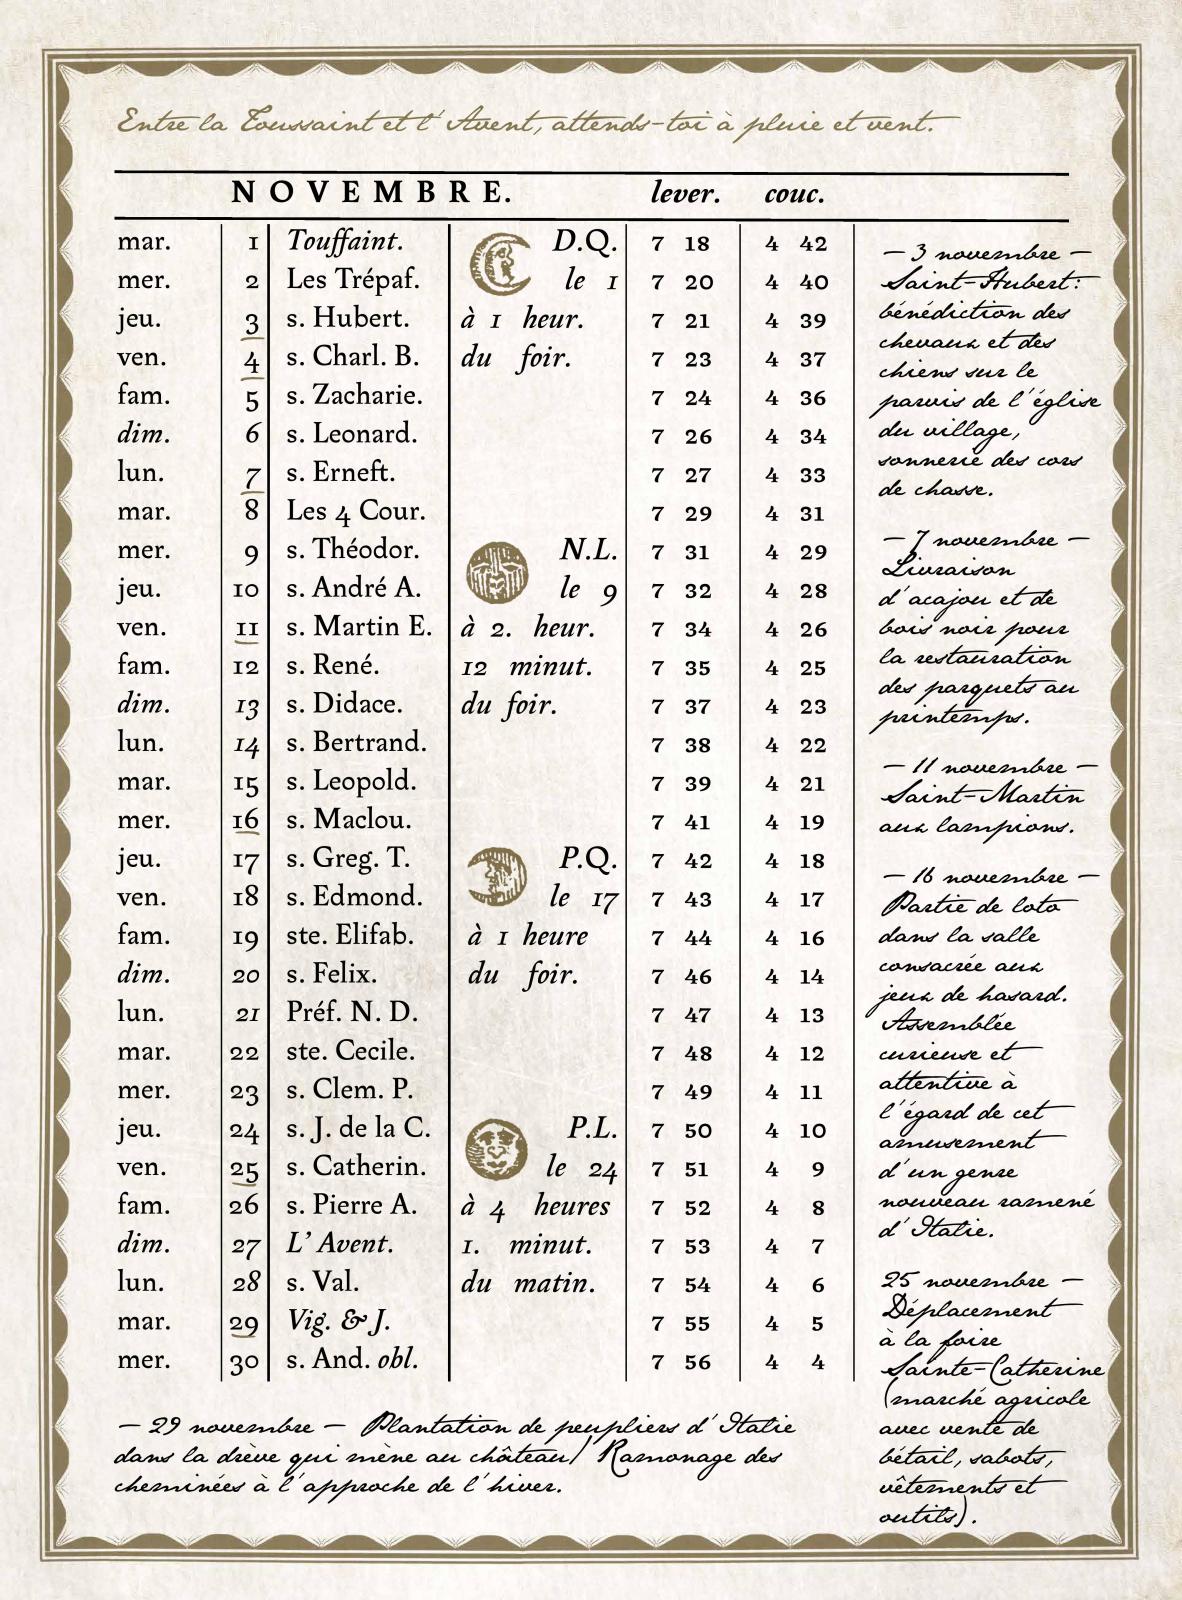 Entre la Toussaint et l'Avent, attends-toi à pluie et vent.
NOVEMBRE. lever. couc.
mar. 1 Touffaint. D.Q. 7 18 4 42
mer. 2 Les Trépaf. le 1 7 20 4 40
jeu. 3 s. Hubert. à 1 heur. 7 21 4 39
ven. 4 s. Charl. B. du foir. 7 23 4 37
fam. 5 s. Zacharie. 7 24 4 36
dim. 6 s. Leonard. 7 26 4 34
lun. 7 s. Erneft. 7 27 4 33
mar. 8 Les 4 Cour. 7 29 4 31
mer. 9 s. Théodor. N.L. 7 31 4 29
jeu. 10 s. André A. le 9 7 32 4 28
ven. 11 s. Martin E. à 2. heur. 7 34 4 26
fam. 12 s. René. 12 minut. 7 35 4 25
dim. 13 s. Didace. du foir. 7 37 4 23
lun. 14 s. Bertrand. 7 38 4 22
mar. 15 s. Leopold. 7 39 4 21
mer. 16 s. Maclou. 7 41 4 19
jeu. 17 s. Greg. T. P.Q. 7 42 4 18
ven. 18 s. Edmond. le 17 7 43 4 17
fam. 19 ste. Elifab. à 1 heure 7 44 4 16
dim. 20 s. Felix. du foir. 7 46 4 14
lun. 21 Préf. N. D. 7 47 4 13
mar. 22 ste. Cecile. 7 48 4 12
mer. 23 s. Clem. P. 7 49 4 11
jeu. 24 s. J. de la C. P.L. 7 50 4 10
ven. 25 s. Catherin. le 24 7 51 4 9
fam. 26 s. Pierre A. à 4 heures 7 52 4 8
dim. 27 L' Avent. 1. minut. 7 53 4 7
lun. 28 s. Val. du matin. 7 54 4 6
mar. 29 Vig. & J. 7 55 4 5
mer. 30 s. And. obl. 7 56 4 4
— 3 novembre —
Saint-Hubert :
bénédiction des
chevaux et des
chiens sur le
parvis de l'église
du village,
sonnerie des cors
de chasse.
— 7 novembre —
Livraison
d'acajou et de
bois noir pour
la restauration
des parquets au
printemps.
— 11 novembre —
Saint-Martin
aux lampions.
— 16 novembre —
Partie de loto
dans la salle
consacrée aux
jeux de hasard.
Assemblée
curieuse et
attentive à
l'égard de cet
amusement
d'un genre
nouveau ramené
d'Italie.
25 novembre —
Déplacement
à la foire
Sainte-Catherine
(marché agricole
avec vente de
bétail, sabots,
vêtements et
outils).
— 29 novembre — Plantation de peupliers d'Italie
dans la drève qui mène au château/ Ramonage des
cheminées à l'approche de l'hiver.